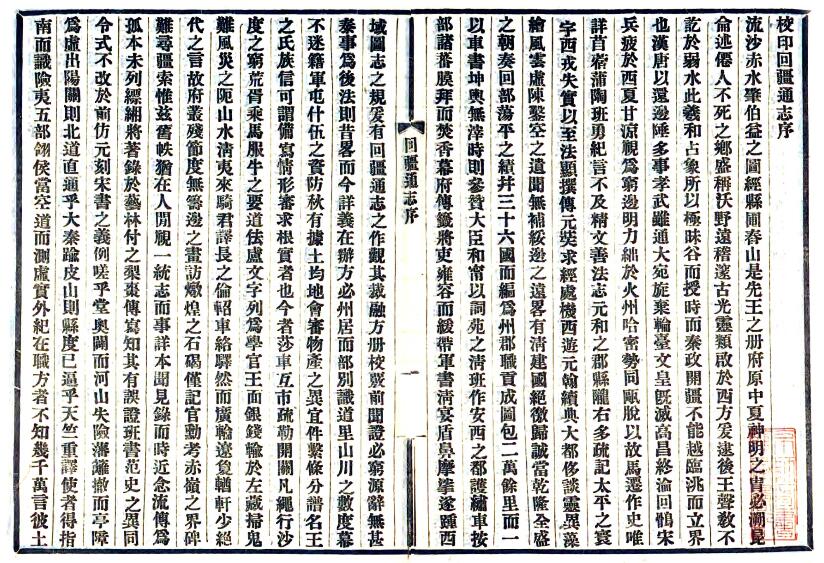 校印回疆通志序
流沙赤水肇伯益之圖經縣圃舂山是先王之册府原中夏神明之冑必溯昆
侖述僊人不死之鄉盛稱沃野遠稽邃古光靈類啟於西方爰逮後王聲敎不
訖於弱水此羲和占象所以極昧谷而授時而秦政開疆不能越臨洮而立界
也漢唐以還邊陲多事孝武雖通大宛旋棄輪臺文皇旣滅高昌終淪回鶻宋
兵疲於西夏甘涼視爲窮邊明力絀於火州哈密勢同甌脫以故馬遷作史唯
詳苜蓿蒲陶班勇紀言不及精文善法志元和之郡縣隴右多疏記太平之寰
字西戎失實以至法顯撰傳元奘求經處機西遊元翰續典大都侈談靈異藻
繪風雲虛陳鑿空之遺聞無補綏邊之遠畧有淸建國絕徼歸誠當乾隆全盛
之朝奏回部蕩平之績幷三十六國而編爲州郡職貢成圖包二萬餘里而一
以車書坤輿無滓時則參贊大臣和甯以詞苑之淸班作安西之都護繡車按
部諸蕃膜拜而焚香幕府傳籤將吏雍容而緩帶軍書淸宴盾鼻摩挲遂踵西
回疆通志序 一
域圖志之規爰有回疆通志之作觀其裁融方册校覈前聞證必窮源辭無甚
秦事爲後法則昔畧而今詳義在辦方必州居而部別識道里山川之數度幕
不迷籍軍屯什伍之實防秋有據土均地會審物產之異宜件繫條分譜名王
之氏族信可謂備寫情形審求根實者也今者莎車互市疏勒開關凡繩行沙
度之窮荒胥乘馬服牛之要道佉盧文字列爲學官王面銀錢輸於左藏掃鬼
難風災之阨山水淸夷來騎君譯長之倫軺車絡驛然而廣輪遼敻輶軒少絕
代之言故府叢殘節度無籌邊之畫訪燉煌之石碣僅記官勳考赤嶺之界碑
難尋疆索惟茲舊帙猶在人間覩一統志而事詳本聞見錄而時近念流傳爲
孤本未列縹緗將著錄於藝林付之棃棗傳寫知其有誤證班書范史之異同
令式不改於前仿元刻宋書之義例嗟乎堂奧闢而河山失險藩籬撤而亭障
爲虛出陽關則北道直通乎大秦踰皮山則縣度已逼乎天竺重譯使者得指
南而識險夷五部翎侯當空道而測虛實外紀在職方者不知幾千萬言彼土